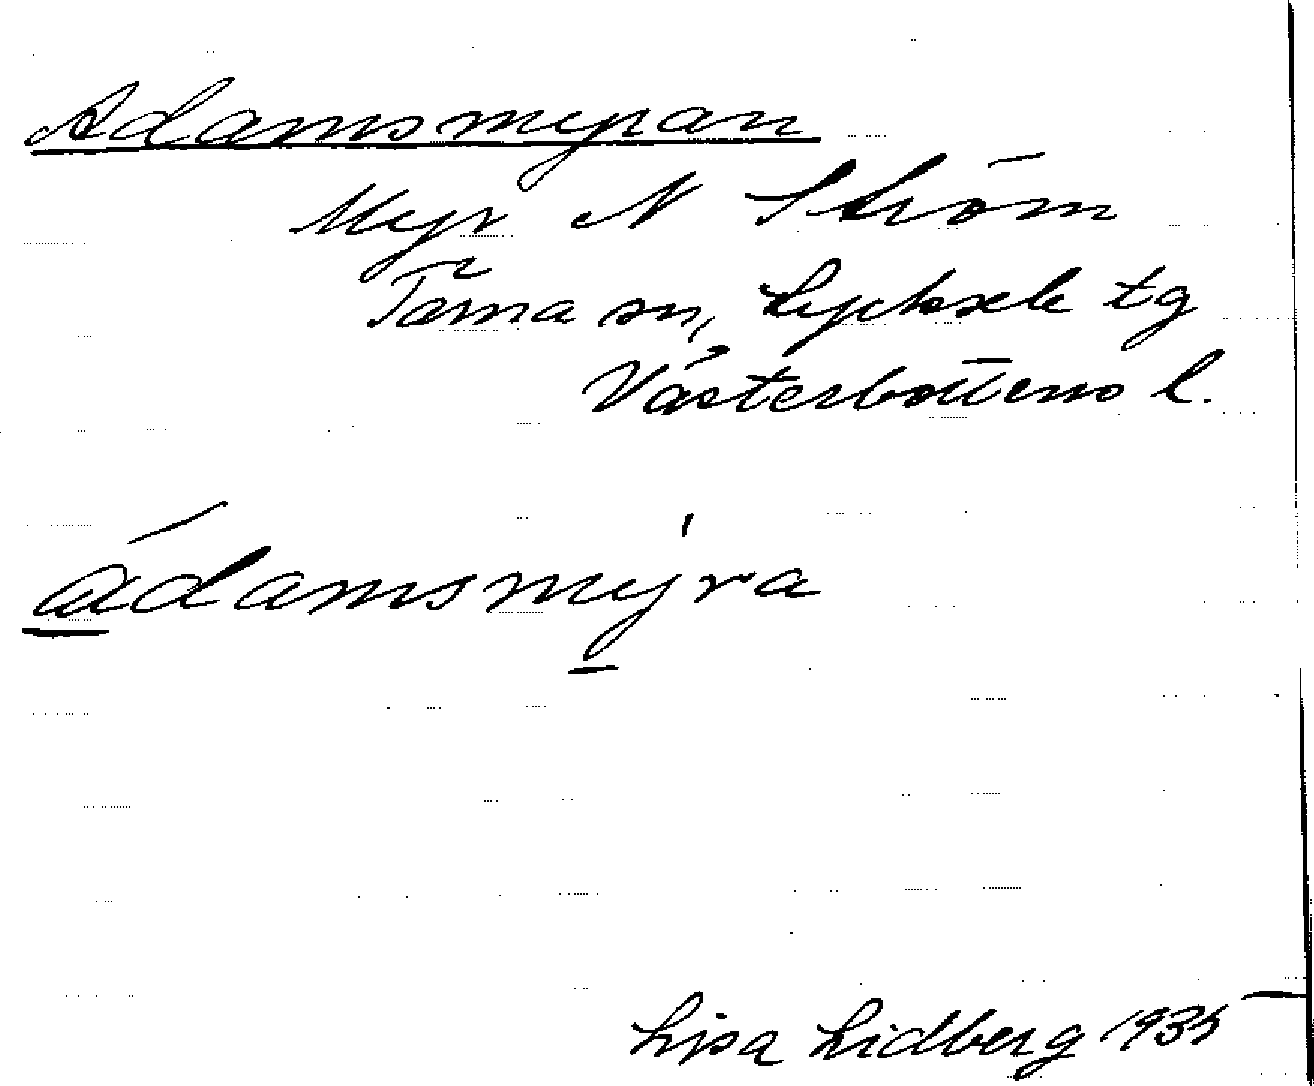 Adamsmyran
Myr N Ström
Tärna sn, Lycksele tg
Västerbottens l.
ádamsmy̍ra
Lisa Lidberg 1935